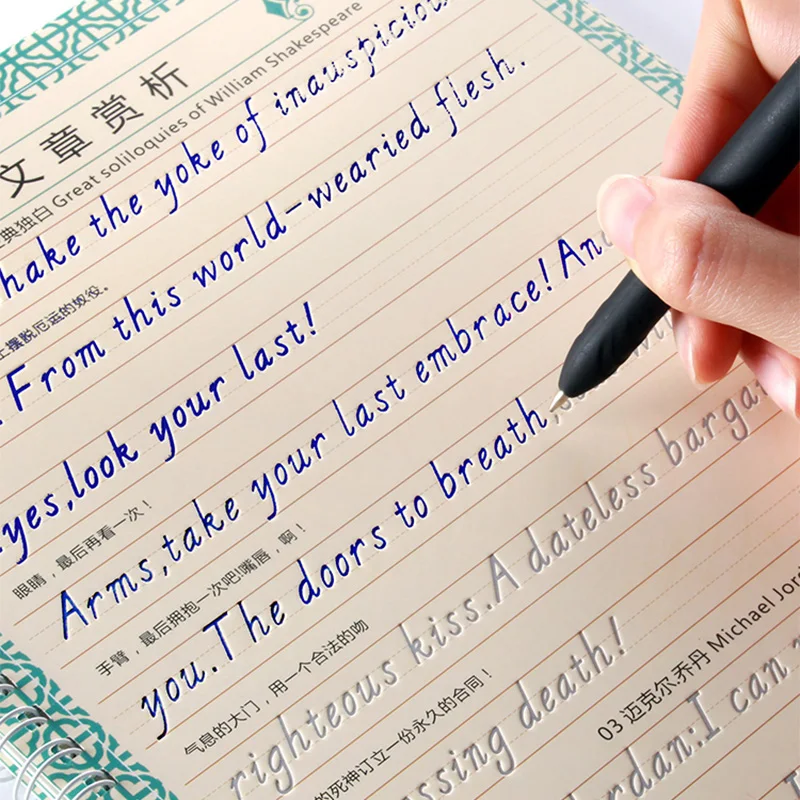 文章赏析
典独白 Great soliloquies of William Shakespeare
hake the yoke of inauspiciou
上摆脱厄运的奴役。
From this world-wearied flesh.
eyes,look your last!
眼睛，最后再看一次！
Arms,take your last embrace! And
手臂，最后拥抱一次吧!嘴唇，啊！
you.The doors to breath,
气息的大门，用一个合法的吻
righteous kiss.A dateless bargai
的死神订立一份永久的合同！
ssing death!
03 迈克尔.乔丹 Michael Jord
rdan:I can